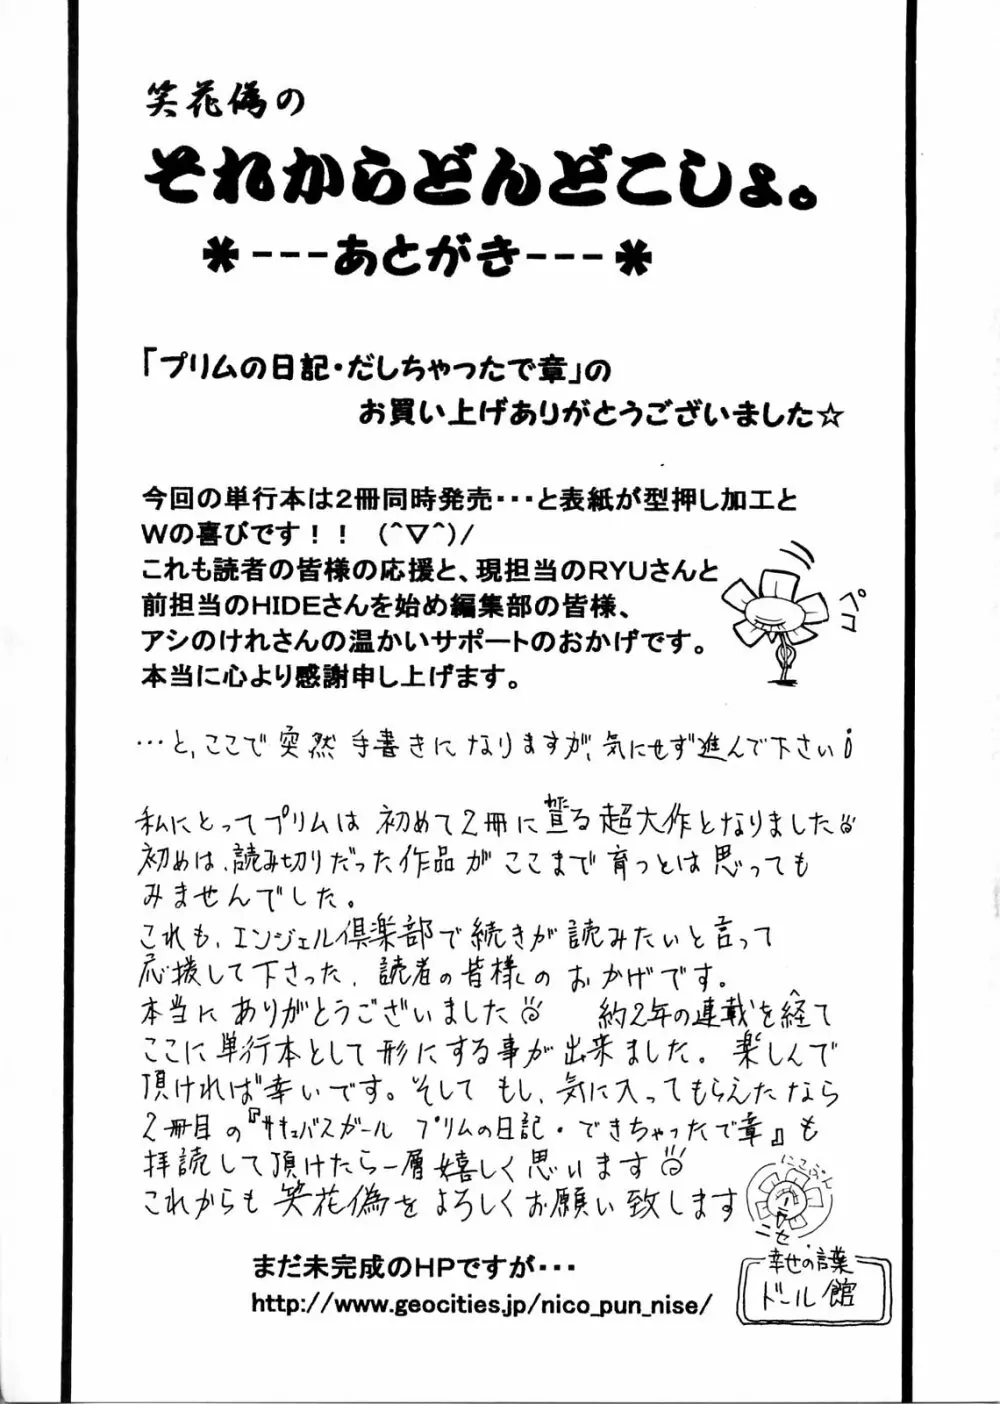 笑花偽の
それからどんどこしょ。
*---あとがき---*
「プリムの日記・だしちゃったで章」の
お買い上げありがとうございました☆
今回の単行本は2冊同時発売・・・と表紙が型押し加工と
Wの喜びです!! (^▽^)/
これも読者の皆様の応援と、現担当のRYUさんと
前担当のHIDEさんを始め編集部の皆様、
アシのけれさんの温かいサポートのおかげです。
本当に心より感謝申し上げます。
ペコ
…と、ここで突然手書きになりますが、気にせず進んで下さいi
私にとってプリムは初めて2冊に亘る超大作となりました
初めは、読み切りだった作品がここまで育つとは思っても
みませんでした。
これも、エンジェル倶楽部で続きが読みたいと言って
応援して下さった、読者の皆様のおかげです。
本当にありがとうございました 約2年の連載を経て
ここに単行本として形にする事が出来ました。楽しんで
頂ければ幸いです。そしてもし、気に入ってもらえたなら
2冊目の『サキュバスガール プリムの日記・できちゃったで章』も
拝読して頂けたら一層嬉しく思います
これからも笑花偽をよろしくお願い致します
にこぷん
ニセ
まだ未完成のHPですが・・・
http://www.geocities.jp/nico_pun_nise/
幸せの言葉
ドール館